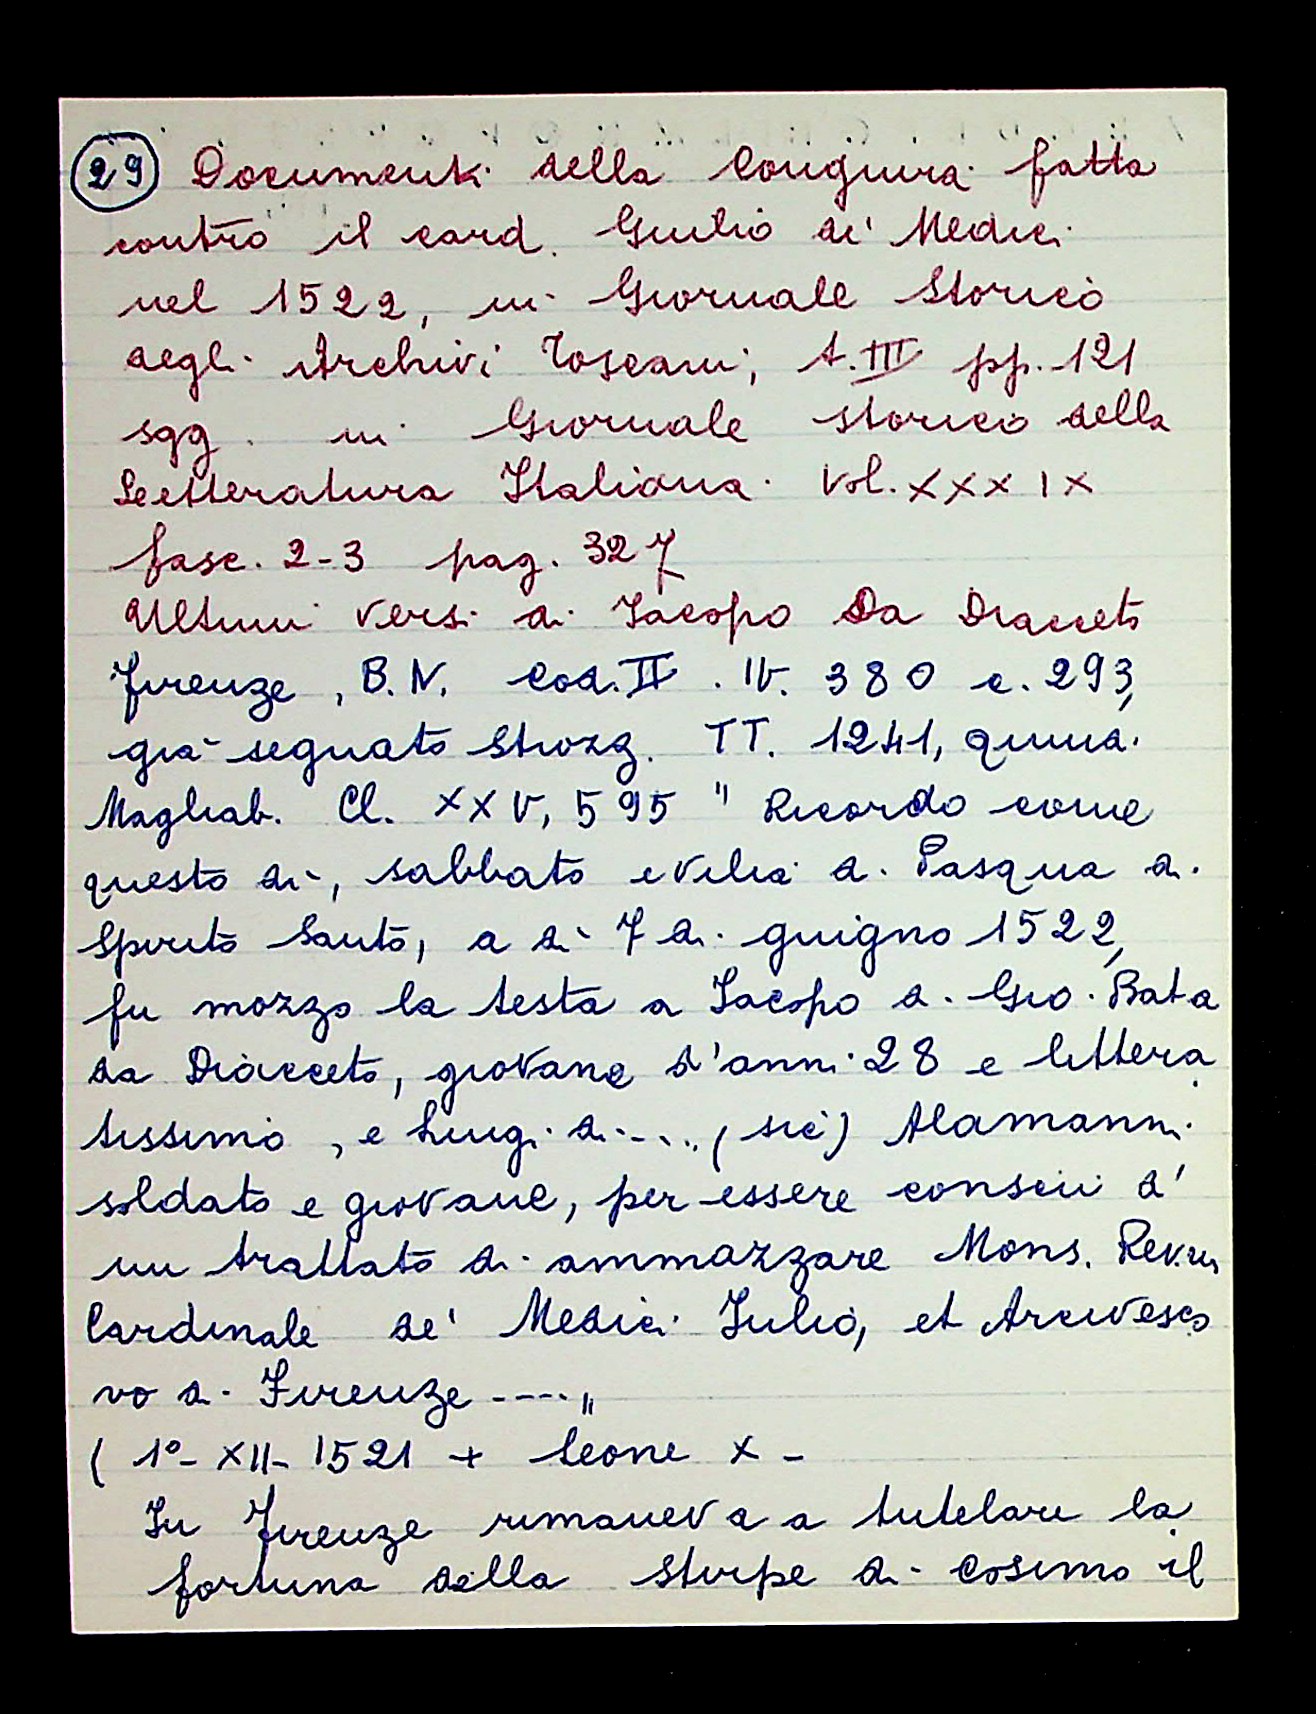 29 Documenti della Congiura fatta
contro il card. Giulio de' Medici
nel 1522, in Giornale Storico
degli Archivi Toscani, A. III pp. 121
sgg. in Giornale storico della
Letteratura Italiana Vol. XXXIX
fasc. 2-3 pag. 327
Ultimi versi di Iacopo Da Diacceto
Firenze, B.N. Cod. II. IV. 380 c. 293,
già segnato Strozz. TT. 1241, quindi
Magliab. Cl. XXV, 595 " Ricordo come
questo dì, sabbato e vilia di Pasqua di
Spirito Santo, a dì 7 di guigno 1522,
fu mozzo la testa a Iacopo di Gio. Bata
da Diacceto, giovane d'anni 28 e littera
tissimo, e Luigi di .... (sic) Alamanni
soldato e giovane, per essere conscii d'
un trattato di ammazzare Mons. Rev.m
Cardinale de' Medici Iulio, et Arcivesco
vo di Firenze ----"
( 1°- XII- 1521 + Leone X -
In Firenze rimaneva a tutelare la
fortuna della stirpe di Cosimo il